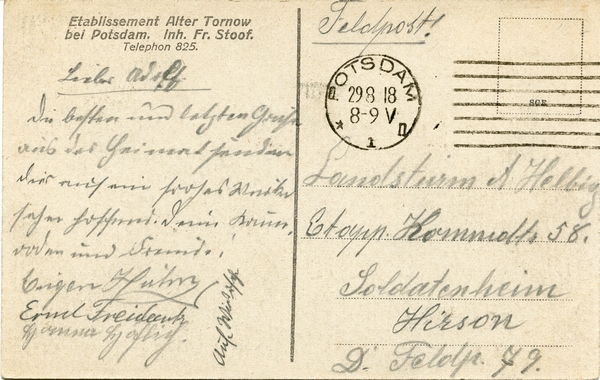 Etablissement Alter Tornow
bei Potsdam. Inh. Fr. Stoof.
Telephon 825.
Lieber Adolf
Die besten und letzten Grüße
aus der Heimat senden
dir auf ein frohes Wieder
sehen hoffend. Deine
und Freunde!
Eugen
Ernst Freidank
Hanna
Feldpost!
POTSDAM
29 8 18
8-9 V
1 n
Landsturm A Helbig
Etapp. Kommdtr 58.
Soldatenheim
Hirson
D. Feldp. 79.